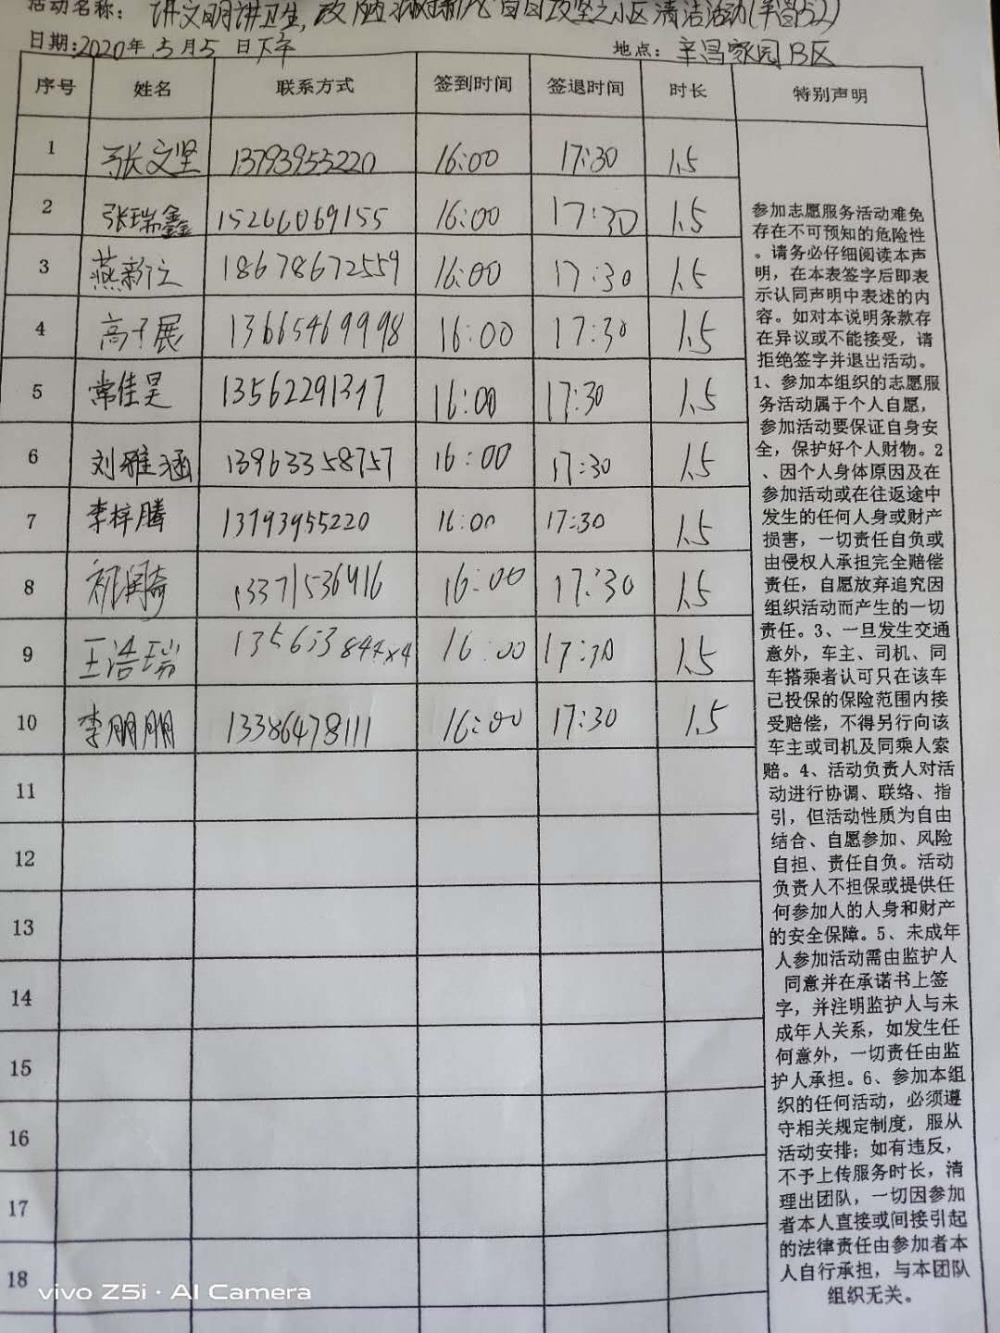 活动名称: 讲文明讲卫生, 百日攻坚之小区清洁活动(辛昌52)
日期:2020年5月5日下午 地点: 辛昌家园B区
序号 姓名 联系方式 签到时间 签退时间 时长 特别声明
1 张文坚 13793955220 16:00 17:30 1.5
2 张瑞鑫 15266069155 16:00 17:30 1.5
3 燕新 18678672559 16:00 17:30 1.5
4 高子展 13665469998 16:00 17:30 1.5
5 常佳昊 13562291347 16:00 17:30 1.5
6 刘雅涵 13963358757 16:00 17:30 1.5
7 李梓腾 13793955220 16:00 17:30 1.5
8 初润琦 13371536416 16:00 17:30 1.5
9 王浩瑞 16:00 17:30 1.5
10 李朋朋 13386478111 16:00 17:30 1.5
11
12
13
14
15
16
17
18
参加志愿服务活动难免
存在不可预知的危险性
。请务必仔细阅读本声
明，在本表签字后即表
示认同声明中表述的内
容。如对本说明条款存
在异议或不能接受，请
拒绝签字并退出活动。
1、参加本组织的志愿服
务活动属于个人自愿，
参加活动要保证自身安
全，保护好个人财物。2
、因个人身体原因及在
参加活动或在往返途中
发生的任何人身或财产
损害，一切责任自负或
由侵权人承担完全赔偿
责任，自愿放弃追究因
组织活动而产生的一切
责任。3、一旦发生交通
意外，车主、司机、同
车搭乘者认可只在该车
已投保的保险范围内接
受赔偿，不得另行向该
车主或司机及同乘人索
赔。4、活动负责人对活
动进行协调、联络、指
引，但活动性质为自由
结合、自愿参加、风险
自担、责任自负。活动
负责人不担保或提供任
何参加人的人身和财产
的安全保障。5、未成年
人参加活动需由监护人
同意并在承诺书上签
字，并注明监护人与未
成年人关系，如发生任
何意外，一切责任由监
护人承担。6、参加本组
织的任何活动，必须遵
守相关规定制度，服从
活动安排；如有违反，
不予上传服务时长，清
理出团队，一切因参加
者本人直接或间接引起
的法律责任由参加者本
人自行承担，与本团队
组织无关。
vivo Z5i · AI Camera